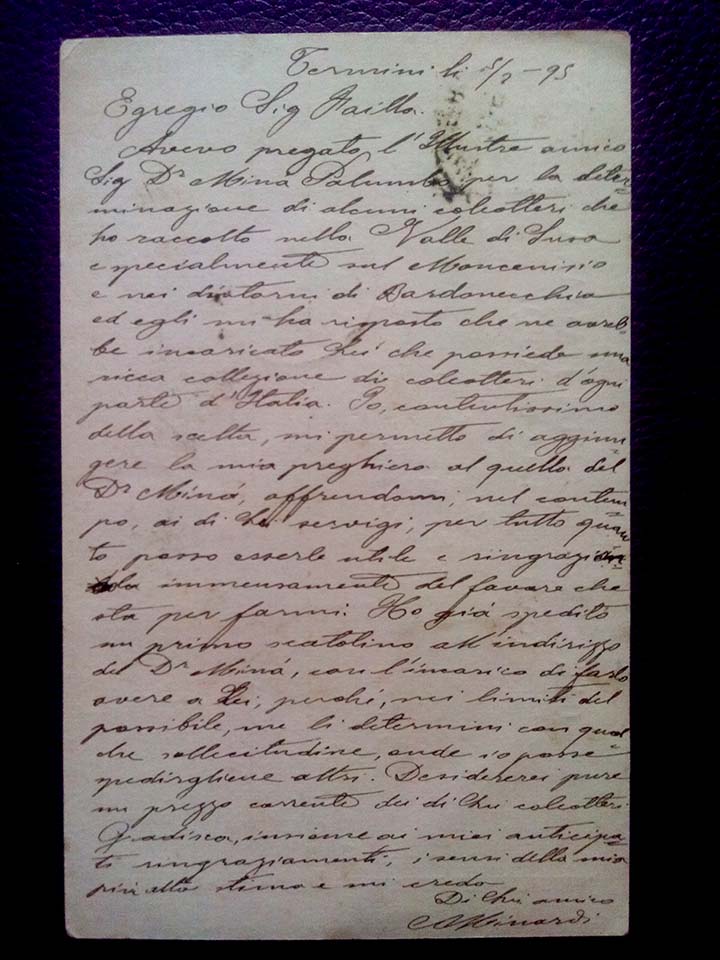 Termini li 5/2-95
Egregio Sig Failla.
Avevo pregato l'Illustre amico
Sig Dr Minà Palumbo per la deter=
minazione di alcuni coleotteri che
ho raccolto nella Valle di Susa
e specialmente sul Moncenisio
e nei dintorni di Bardonecchia
ed egli mi ha risposto che ne avreb=
be incaricato Lei che possiede una
ricca collezione di coleotteri d'ogni
parte d'Italia. Io, contentissimo
della scelta, mi permetto di aggiun
gere la mia preghiera al quella del
Dr Miná, offrendomi, nel contem=
po, ai di Lei servigi, per tutto quan
to posso esserle utile e ringrazian=
dola immensamente del favore che
sta per farmi. Ho giá spedito
un primo scatolino all'indirizzo
del Dr Miná, con l'incarico di farlo
avere a Lei, perché, nei limiti del
possibile, me li determini con qual
che sollecitudine, onde io possa
spedirgliene altri. Desidererei pure
un prezzo corrente dei di Lui coleotteri
Gradisca, insieme ai miei anticipa=
ti ringraziamenti, i sensi della mia
più alta stima e mi creda
Di Lui amico
Minardi